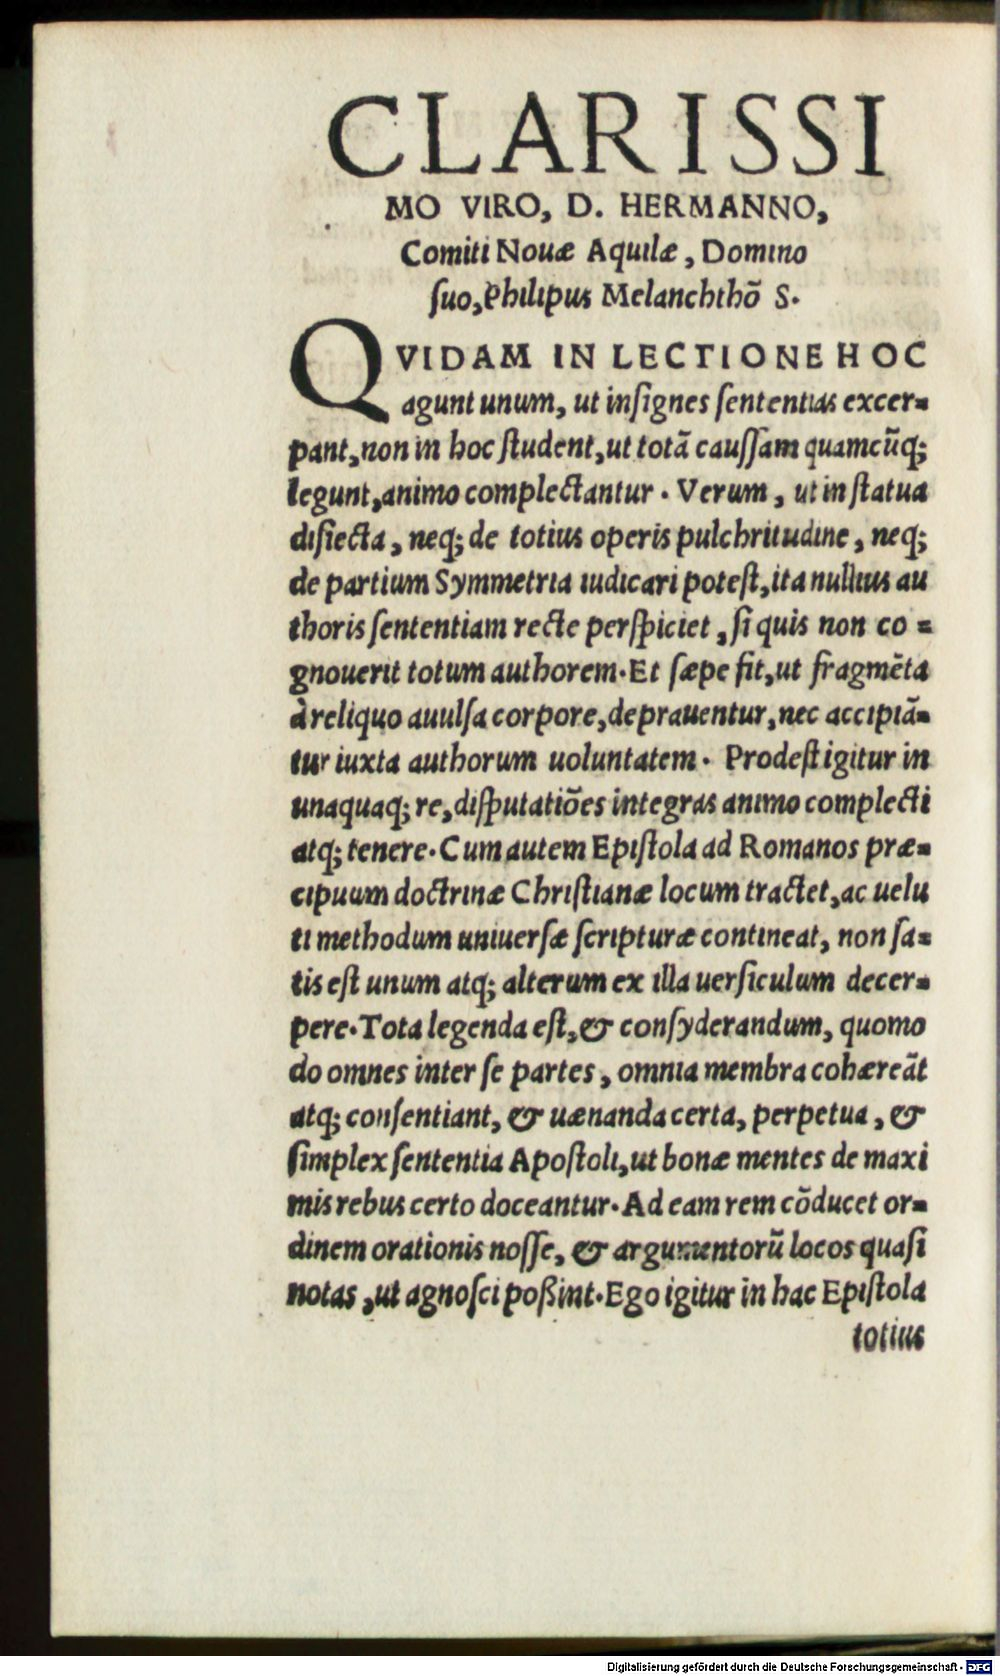 CLARISSI
MO VIRO, D. HERMANNO,
Comiti Nouæ Aquilæ, Domino
ſuo, Philipus Melanchthõ S.
QVIDAM IN LECTIONE HOC
agunt unum, ut inſignes ſententias excer=
pant, non in hoc ſtudent, ut totã cauſſam quamcũq;
legunt, animo complectantur. Verum, ut in ſtatua
diſiecta, neq; de totius operis pulchritudine, neq;
de partium Symmetria iudicari poteſt, ita nullius au
thoris ſententiam recte perſpiciet, ſi quis non co=
gnouerit totum authorem. Et ſæpe fit, ut fragmẽta
à reliquo auulſa corpore, deprauentur, nec accipiã=
tur iuxta authorum uoluntatem. Prodeſt igitur in
unaquaq; re, diſputatiões integras animo complecti
atq; tenere. Cum autem Epiſtola ad Romanos præ=
cipuum doctrinæ Chriſtianæ locum tractet, ac uelu
ti methodum uniuerſæ ſcripturæ contineat, non ſa=
tis eſt unum atq; alterum ex illa uerſiculum decer=
pere. Tota legenda eſt, & conſyderandum, quomo
do omnes inter ſe partes, omnia membra cohæreãt
atq; conſentiant, & uænanda certa, perpetua, &
ſimplex ſententia Apoſtoli, ut bonæ mentes de maxi
mis rebus certo doceantur. Ad eam rem cõducet or=
dinem orationis noſſe, & argumentorũ locos quaſi
notas, ut agnoſci poßint. Ego igitur in hac Epiſtola
totius
Digitalisierung gefördert durch die Deutsche Forschungsgemeinschaft - DFG